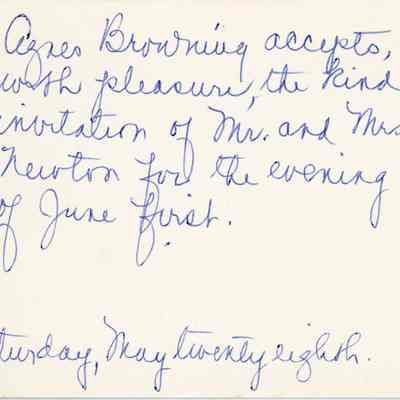 Agnes Browning accepts,
with pleasure, the kind
invitation of Mr. and Mrs
Newton for the evening
of June first.
turday, May twenty eighth.